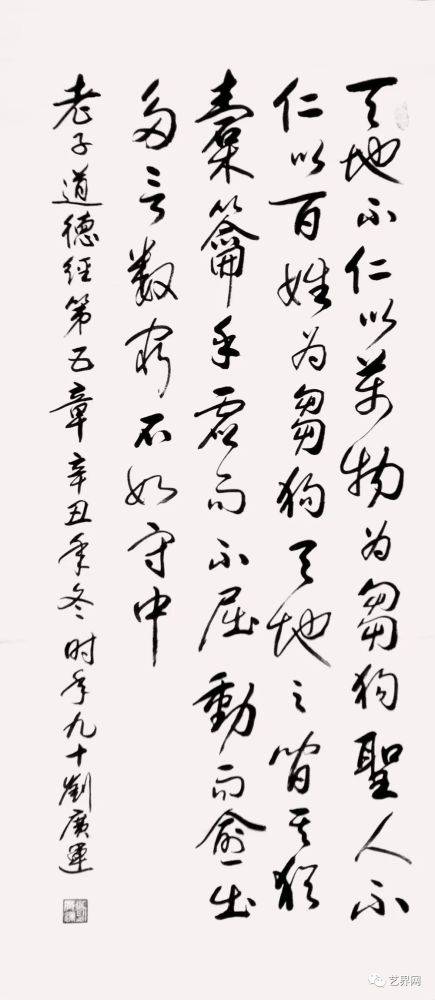 天地不仁以萬物为芻狗聖人不
仁以百姓为芻狗天地之间其犹
橐籥乎虚而不屈動而愈出
多言数穷不如守中
老子道德经第五章辛丑年冬时年九十劉廣運
艺界网